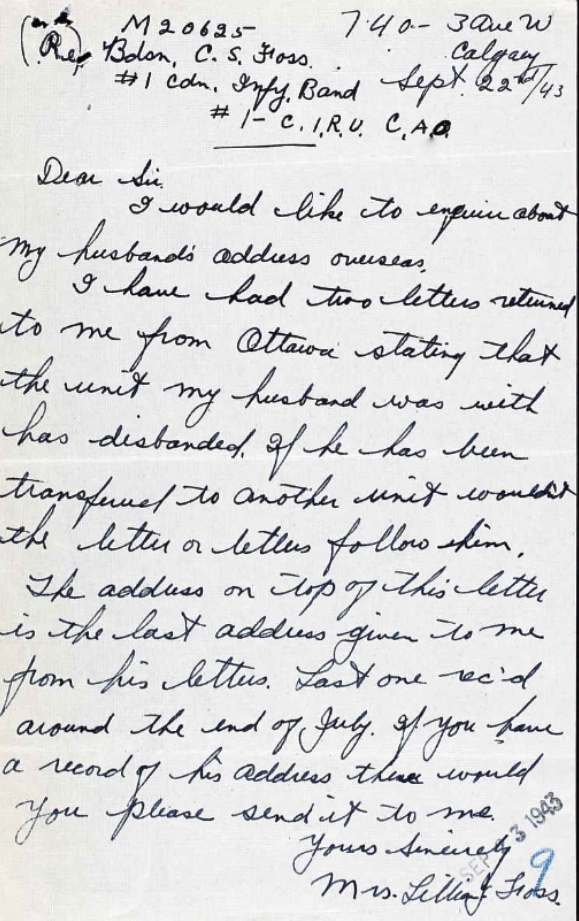 M20625 740 - 3 Ave W
(Re. Bdsn, C. S. Foss. Calgary
#1 Cdn. Infy. Band Sept. 22nd/43
#1 - C.I.R.U. C.A.O.
Dear Sir.
I would like to enquire about
my husband's address overseas.
I have had two letters returned
to me from Ottawa stating that
the unit my husband was with
has disbanded. If he has been
transferred to another unit wouldn't
the letter or letters follow him.
The address on top of this letter
is the last address given to me
from his letters. Last one rec'd
around the end of July. If you have
a record of his address there would
you please send it to me.
Yours Sincerely
SEP 3 1943
9
Mrs. Foss.